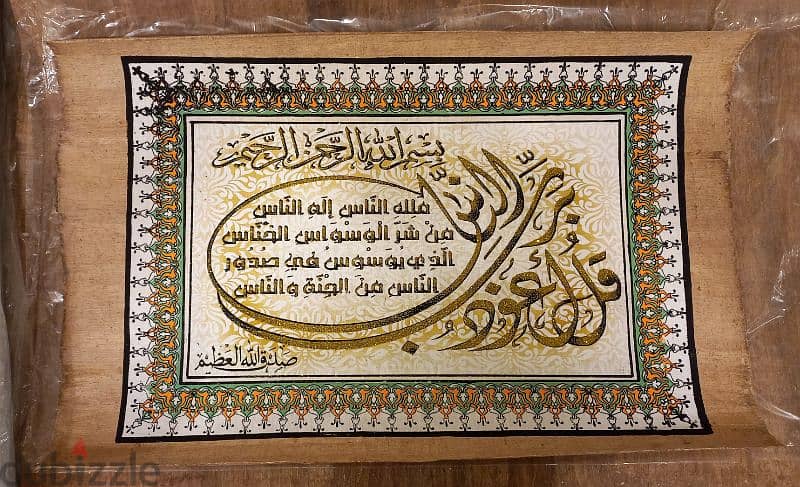 بسم الله الرحمن الرحيم
قُل أعُوذ بِرَبِّ النَّاسِ
مَلِكِ النَّاسِ إِلَهِ النَّاسِ
مِنْ شَرِّ الْوَسْوَاسِ الخَنَّاسِ
الَّذِي يُوَسْوِسُ فِي صُدُورِ
النَّاسِ مِنَ الجِنَّةِ وَالنَّاسِ
صدق الله العظيم
dubizzle